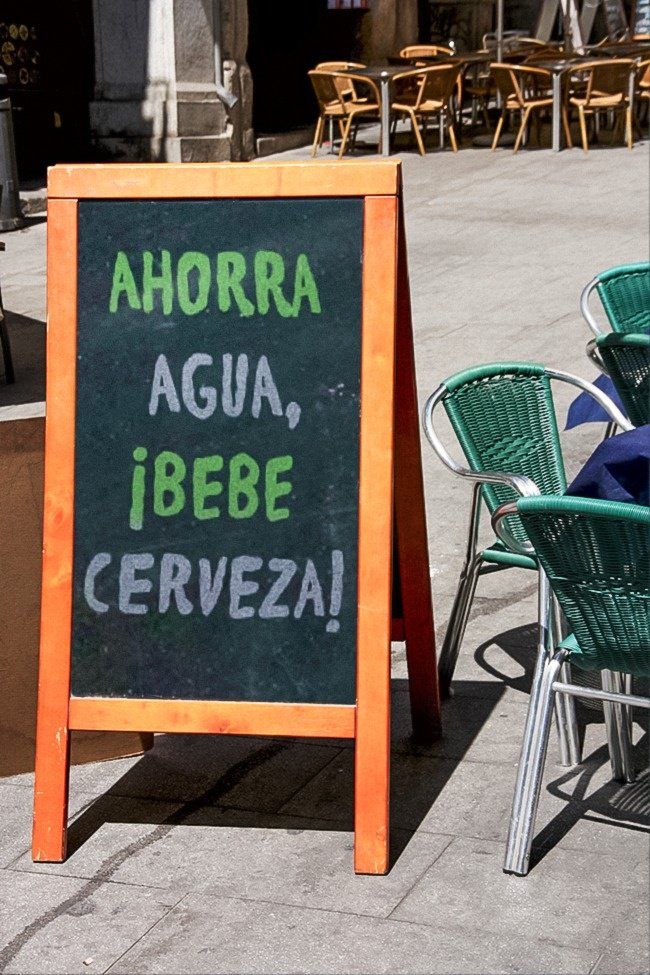 AHORRA
AGUA,
¡BEBE
CERVEZA!